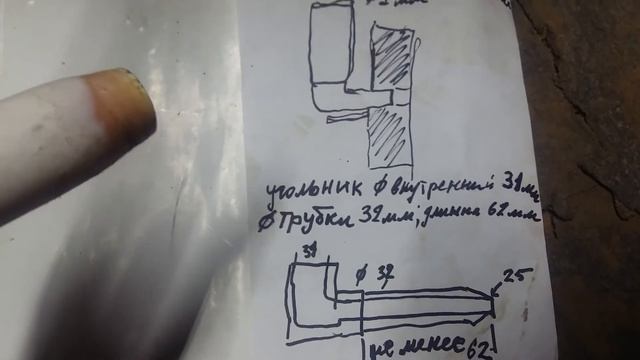 угольник ф внутренний 31мм
ф трубки 32мм; длинна 62мм
31 ф 32 25
не менее 62